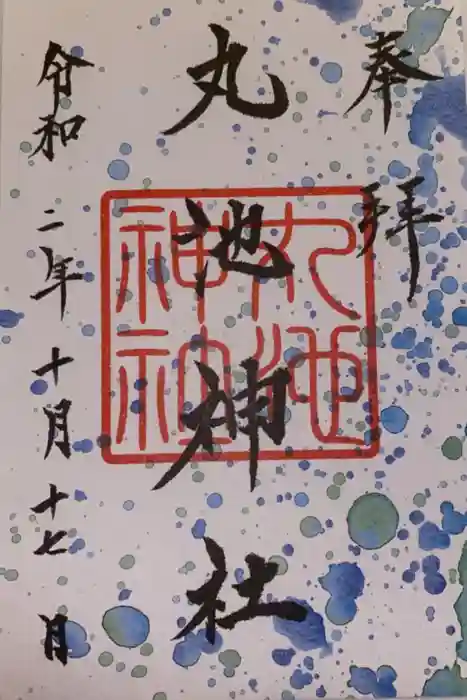 奉拝
丸池神社
丸池
神社
令和二年十月十七日